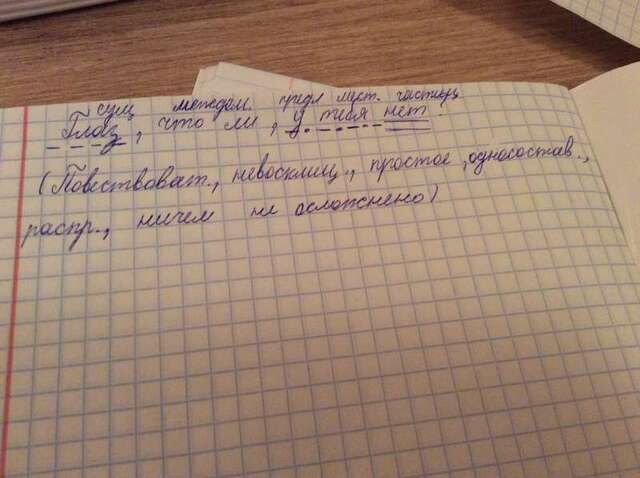 сущ междом. предл мест. частица
Глаз, что ли, у тебя нет.
(Повествоват., невосклиц., простое, односостав.,
распр., ничем не осложнено)